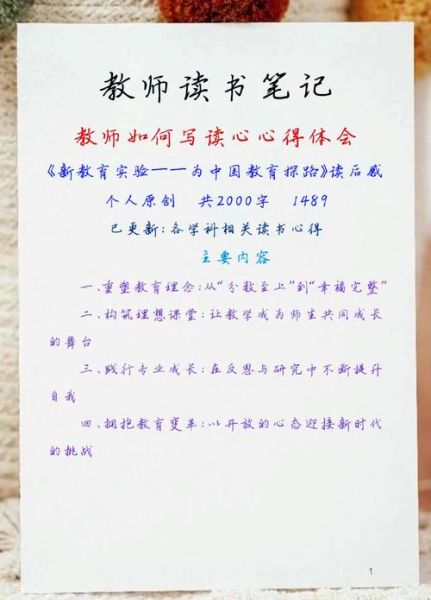 教师读书笔记
教师如何写读心心得体会
《新教育实验——为中国教育探路》读后感
个人原创 共2000字 1489
已更新:各学科相关读书心得
主要内容
一、重塑教育理念:从“分数至上”到“幸福完整”
二、构筑理想课堂:让教学成为师生共同成长
的舞台
三、践行专业成长:在反思与研究中不断提升
自我
四、拥抱教育变革:以开放的心态迎接新时代
的挑战
1